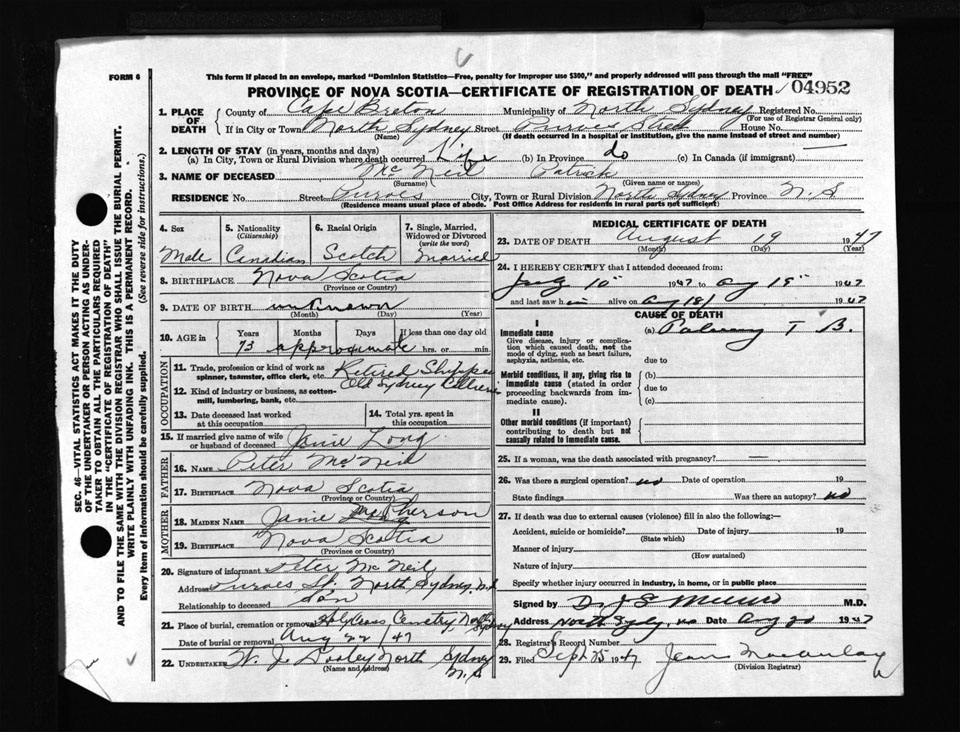 FORM 6
This form if placed in an envelope, marked "Dominion Statistics—Free, penalty for improper use $300," and properly addressed will pass through the mail "FREE"
PROVINCE OF NOVA SCOTIA—CERTIFICATE OF REGISTRATION OF DEATH 04952
1. PLACE OF DEATH
County of Cape Breton Municipality of North Sydney Registered No.
(For use of Registrar General only)
If in City or Town North Sydney Street House No.
(Name) (If death occurred in a hospital or institution, give the name instead of street and number)
2. LENGTH OF STAY (in years, months and days)
(a) In City, Town or Rural Division where death occurred Life (b) In Province do (c) In Canada (if immigrant) —
3. NAME OF DECEASED McNeil Patrick
(Surname) (Given name or names)
RESIDENCE No. Street Purves City, Town or Rural Division North Sydney Province N. S
(Residence means usual place of abode. Post Office Address for residents in rural parts not sufficient)
4. Sex Male
5. Nationality (Citizenship) Canadian
6. Racial Origin Scotch
7. Single, Married, Widowed or Divorced (write the word) Married
8. BIRTHPLACE Nova Scotia
(Province or Country)
9. DATE OF BIRTH unknown
(Month) (Day) (Year)
10. AGE in Years Months Days If less than one day old
73 approximate hrs. or min.
OCCUPATION
11. Trade, profession or kind of work as spinner, teamster, office clerk, etc. Retired
12. Kind of industry or business, as cotton-mill, lumbering, bank, etc. Old Sydney
13. Date deceased last worked at this occupation
14. Total yrs. spent in this occupation
15. If married give name of wife or husband of deceased Janie Long
FATHER
16. NAME Peter McNeil
17. BIRTHPLACE Nova Scotia
(Province or Country)
MOTHER
18. MAIDEN NAME Janie McPherson
19. BIRTHPLACE Nova Scotia
(Province or Country)
20. Signature of informant Peter McNeil
Address Purves St. North Sydney, N.S
Relationship to deceased Son
21. Place of burial, cremation or removal Holy Cross Cemetry North Sydney
Date of burial or removal Aug 22/47
22. UNDERTAKER W. J. Dooley North Sydney N. S
(Name and address)
MEDICAL CERTIFICATE OF DEATH
23. DATE OF DEATH August 19 1947
(Month) (Day) (Year)
24. I HEREBY CERTIFY that I attended deceased from:
10 1947 to Aug 19 1947
and last saw him alive on Aug 18 1947
CAUSE OF DEATH
I
Immediate cause (a) T B.
Give disease, injury or complication which caused death, not the mode of dying, such as heart failure, asphyxia, asthenia, etc. due to
Morbid conditions, if any, giving rise to immediate cause (stated in order proceeding backwards from immediate cause). (b) due to (c)
II
Other morbid conditions (if important) contributing to death but not causally related to immediate cause.
25. If a woman, was the death associated with pregnancy? —
26. Was there a surgical operation? no Date of operation 19
State findings Was there an autopsy? no
27. If death was due to external causes (violence) fill in also the following:—
Accident, suicide or homicide? Date of injury 19
(State which)
Manner of injury
(How sustained)
Nature of injury
Specify whether injury occurred in industry, in home, or in public place
Signed by M.D.
Address North Sydney, Date Aug 20 1947
28. Registrar's Record Number
29. Filed Sept 25 1947 Jean Macaulay
(Division Registrar)
SEC. 46—VITAL STATISTICS ACT MAKES IT THE DUTY
OF THE UNDERTAKER OR PERSON ACTING AS UNDER-
TAKER TO OBTAIN ALL THE PARTICULARS REQUIRED
IN THE "CERTIFICATE OF REGISTRATION OF DEATH"
AND TO FILE THE SAME WITH THE DIVISION REGISTRAR WHO SHALL ISSUE THE BURIAL PERMIT.
WRITE PLAINLY WITH UNFADING INK. THIS IS A PERMANENT RECORD.
Every item of information should be carefully supplied. (See reverse side for instructions.)